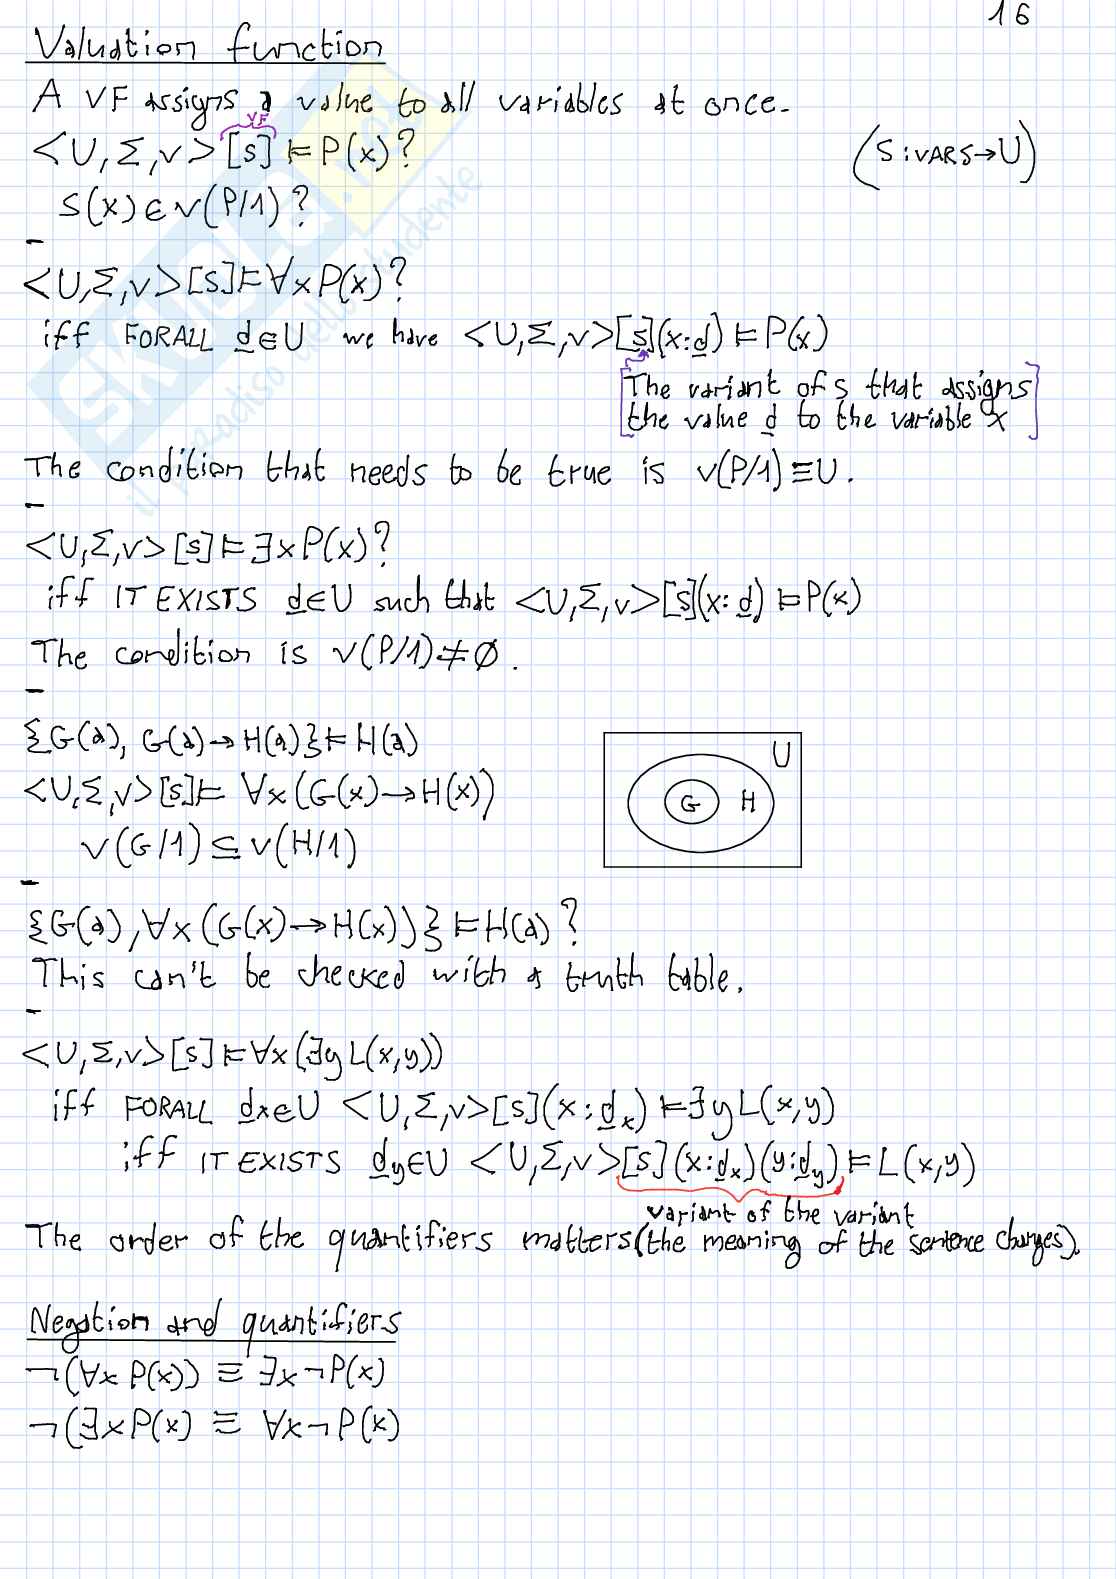 16
Valuation function
A VF assigns a value to all variables at once.
VF
<U,Σ,v>[s]⊨P(x)?
(S:VARS→U)
S(x)∈v(P/1)?
-
<U,Σ,v>[s]⊨∀xP(x)?
iff FORALL d∈U we have <U,Σ,v>[s](x:d)⊨P(x)
[The variant of s that assigns
the value d to the variable x]
The condition that needs to be true is v(P/1)≡U.
-
<U,Σ,v>[s]⊨∃xP(x)?
iff IT EXISTS d∈U such that <U,Σ,v>[s](x:d)⊨P(x)
The condition is v(P/1)≠∅.
-
{G(a), G(a)→H(a)}⊨H(a)
<U,Σ,v>[s]⊨ ∀x(G(x)→H(x))
v(G/1)⊆v(H/1)
U
G H
-
{G(a),∀x(G(x)→H(x))}⊨H(a)?
This can't be checked with a truth table.
-
<U,Σ,v>[s]⊨∀x(∃yL(x,y))
iff FORALL dx∈U <U,Σ,v>[s](x:dx)⊨∃yL(x,y)
iff IT EXISTS dy∈U <U,Σ,v>[s](x:dx)(y:dy)⊨L(x,y)
variant of the variant
The order of the quantifiers matters(the meaning of the sentence changes).
Negation and quantifiers
¬(∀x P(x)) ≡ ∃x¬P(x)
¬(∃xP(x) ≡ ∀x¬P(x)